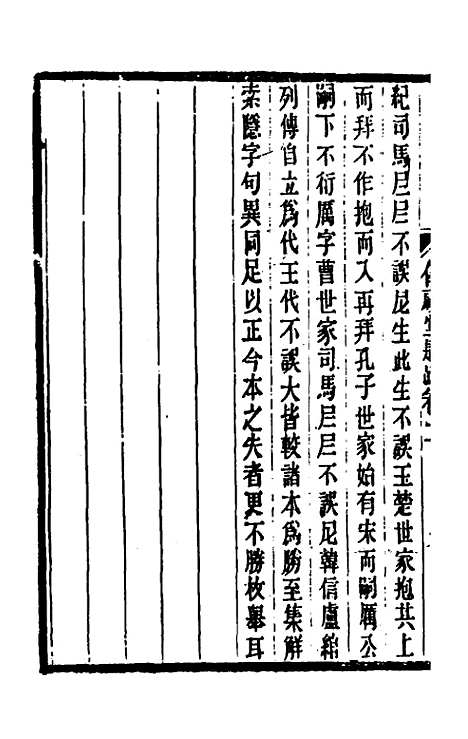 紀司馬𡰥𡰥不誤尼生此生不誤王楚世家抱其上
而拜不作抱而入再拜孔子世家始有宋而嗣厲公
嗣下不衍厲字曹世家司馬𡰥𡰥不誤尼韓信盧綰
列傳自立為代王代不誤大皆較諸本為勝至集解
索隱字句異同足以正今本之失者更不勝枚舉耳